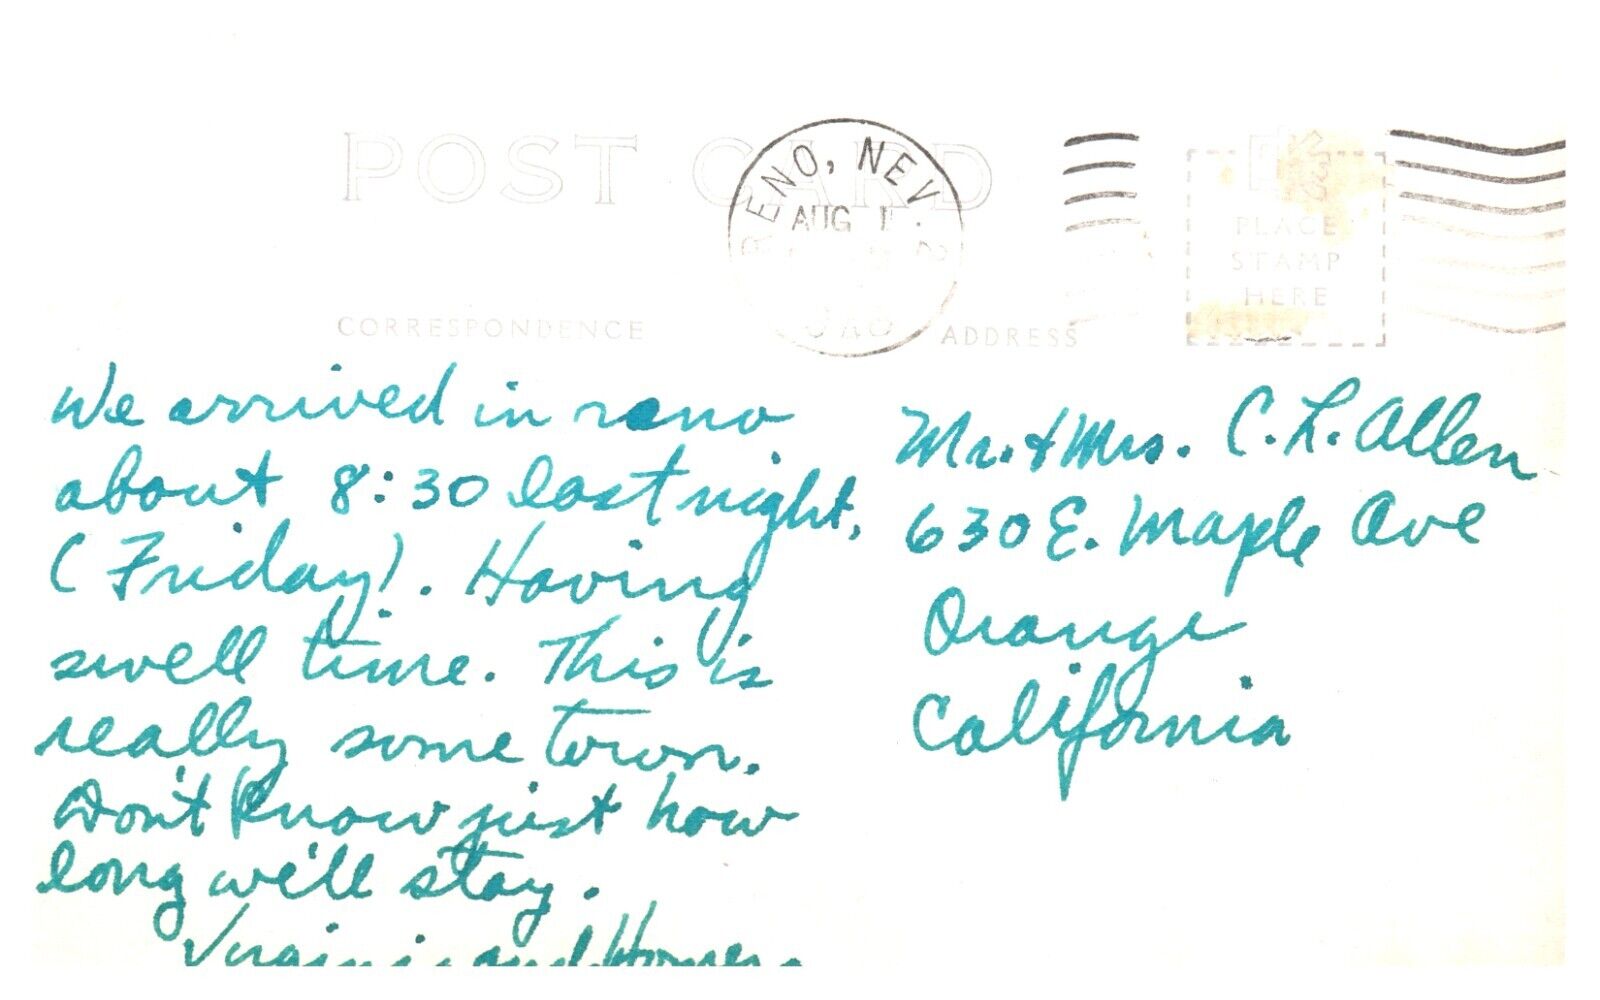 POST CARD
RENO, NEV.
AUG 1
2
PLACE
STAMP
HERE
CORRESPONDENCE
ADDRESS
We arrived in reno
about 8:30 last night,
(Friday). Having
swell time. This is
really some town.
Don't know just how
long we'll stay.
Virginia and Homer.
Mr. & Mrs. C. L. Allen
630 E. Maple Ave
Orange
California